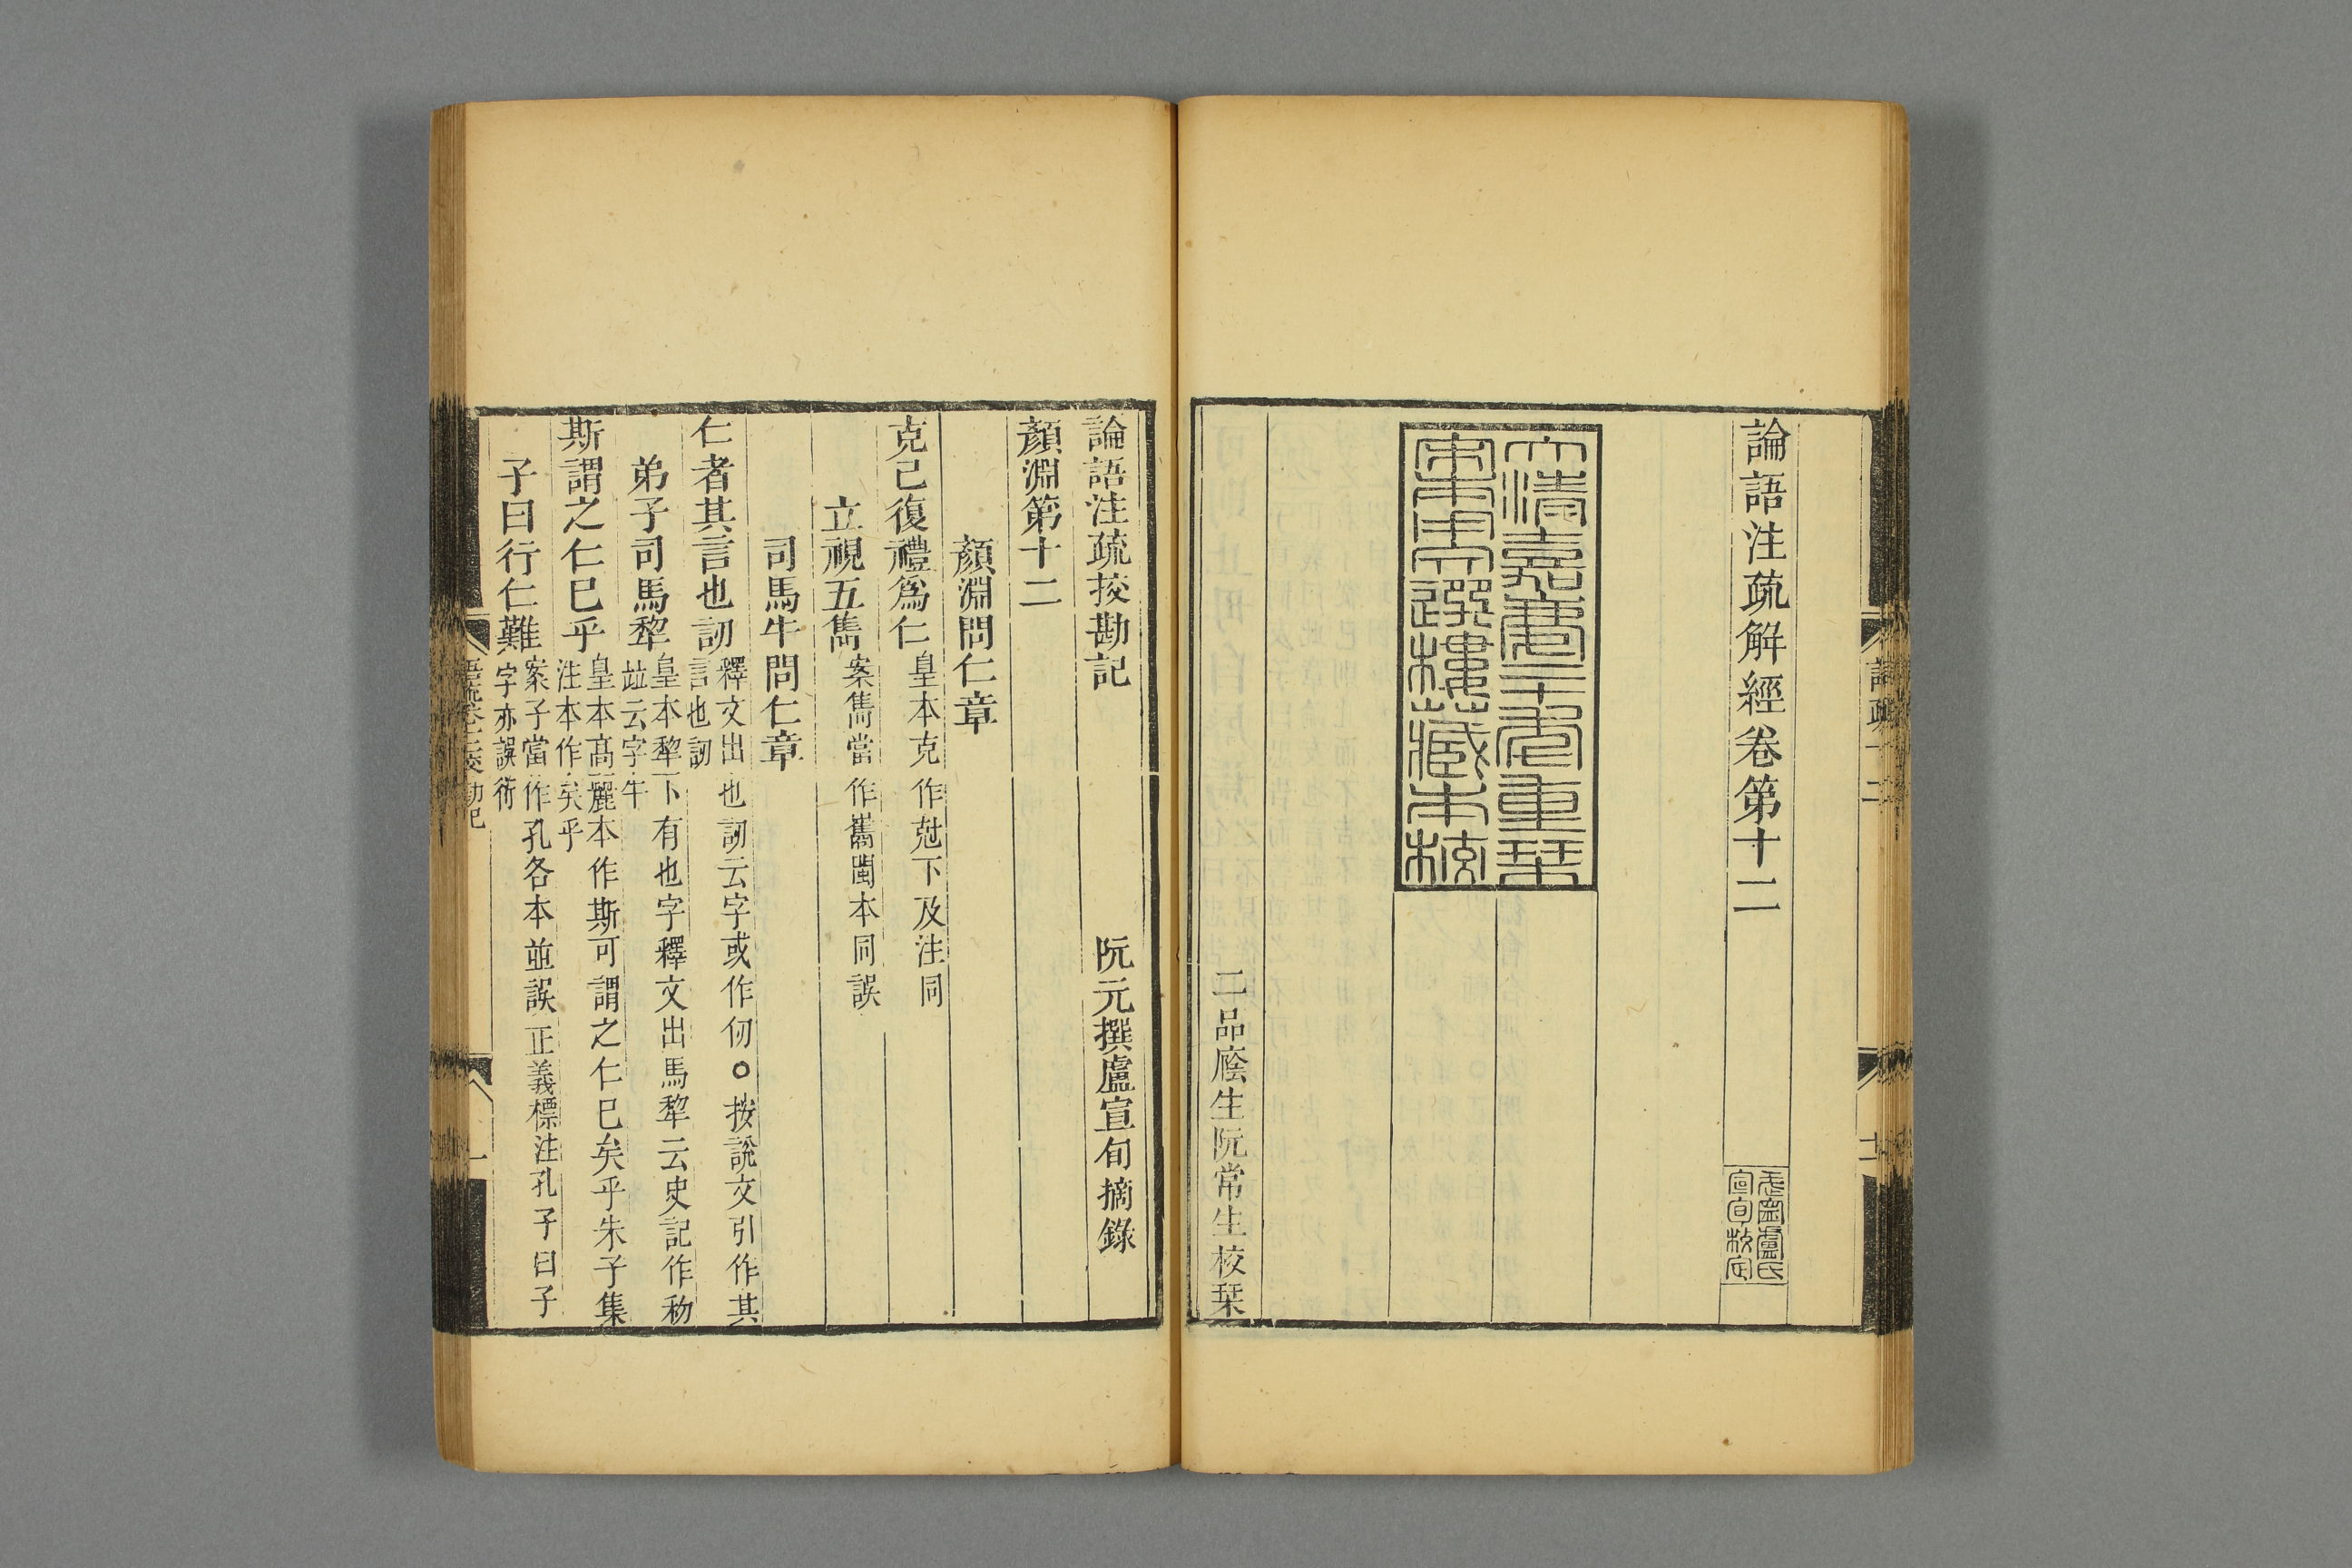 論語注疏解經卷第十二
武寧盧氏
宣旬校定
大清嘉慶二十年重栞
宋本用文選樓藏本校
二品廕生阮常生校栞
論語注疏挍勘記
阮元撰盧宣旬摘錄
顏淵第十二
顏淵問仁章
克己復禮為仁 皇本克作尅下及注同
立視五雋 案雋當作巂閩本同誤
司馬牛問仁章
仁者其言也訒 釋文出也訒云字或作仞○按說文引作其言也訒
弟子司馬犂 皇本犂下有也字釋文出馬犂云史記作秎竝云字牛
斯謂之仁巳乎 皇本高麗本作斯可謂之仁巳矣乎朱子集注本作矣乎
子曰行仁難 案子當作孔各本並誤正義標注孔子曰子字亦誤衍